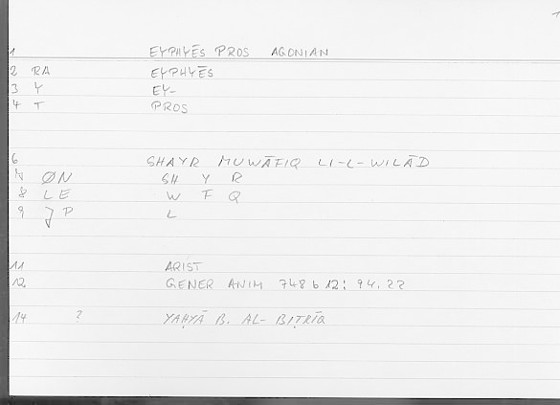 1 EYPHYĒS PROS AGONIAN
2 RA EYPHYĒS
3 Y EY-
4 T PROS
6 SHAYR MUWĀFIQ LI-L-WILĀD
7 ØN SH Y R
8 LE W F Q
9 JP L
11 ARIST
12 GENER ANIM 748 b 12; 94.22
14 ? YAḤYĀ B. AL-BIṬRĪQ